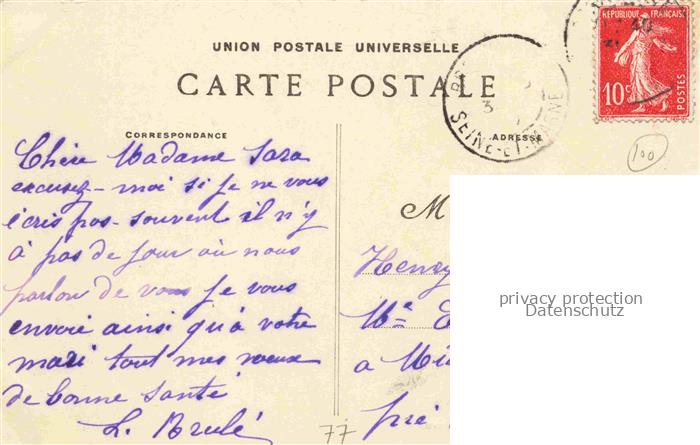 UNION POSTALE UNIVERSELLE
CARTE POSTALE
REPUBLIQUE FRANÇAISE
10c
POSTES
3
SEINE-ET-MARNE
CORRESPONDANCE
ADRESSE
100
Chère Madame Sara
excusez-moi si je ne vous
écris pas souvent il n'y
à pas de jour où nous
parlon de vous je vous
envoie ainsi qu'à votre
mari tout mes vœux
de bonne santé
L. Brulé
77
M
Henry
Me
a
privacy protection
Datenschutz